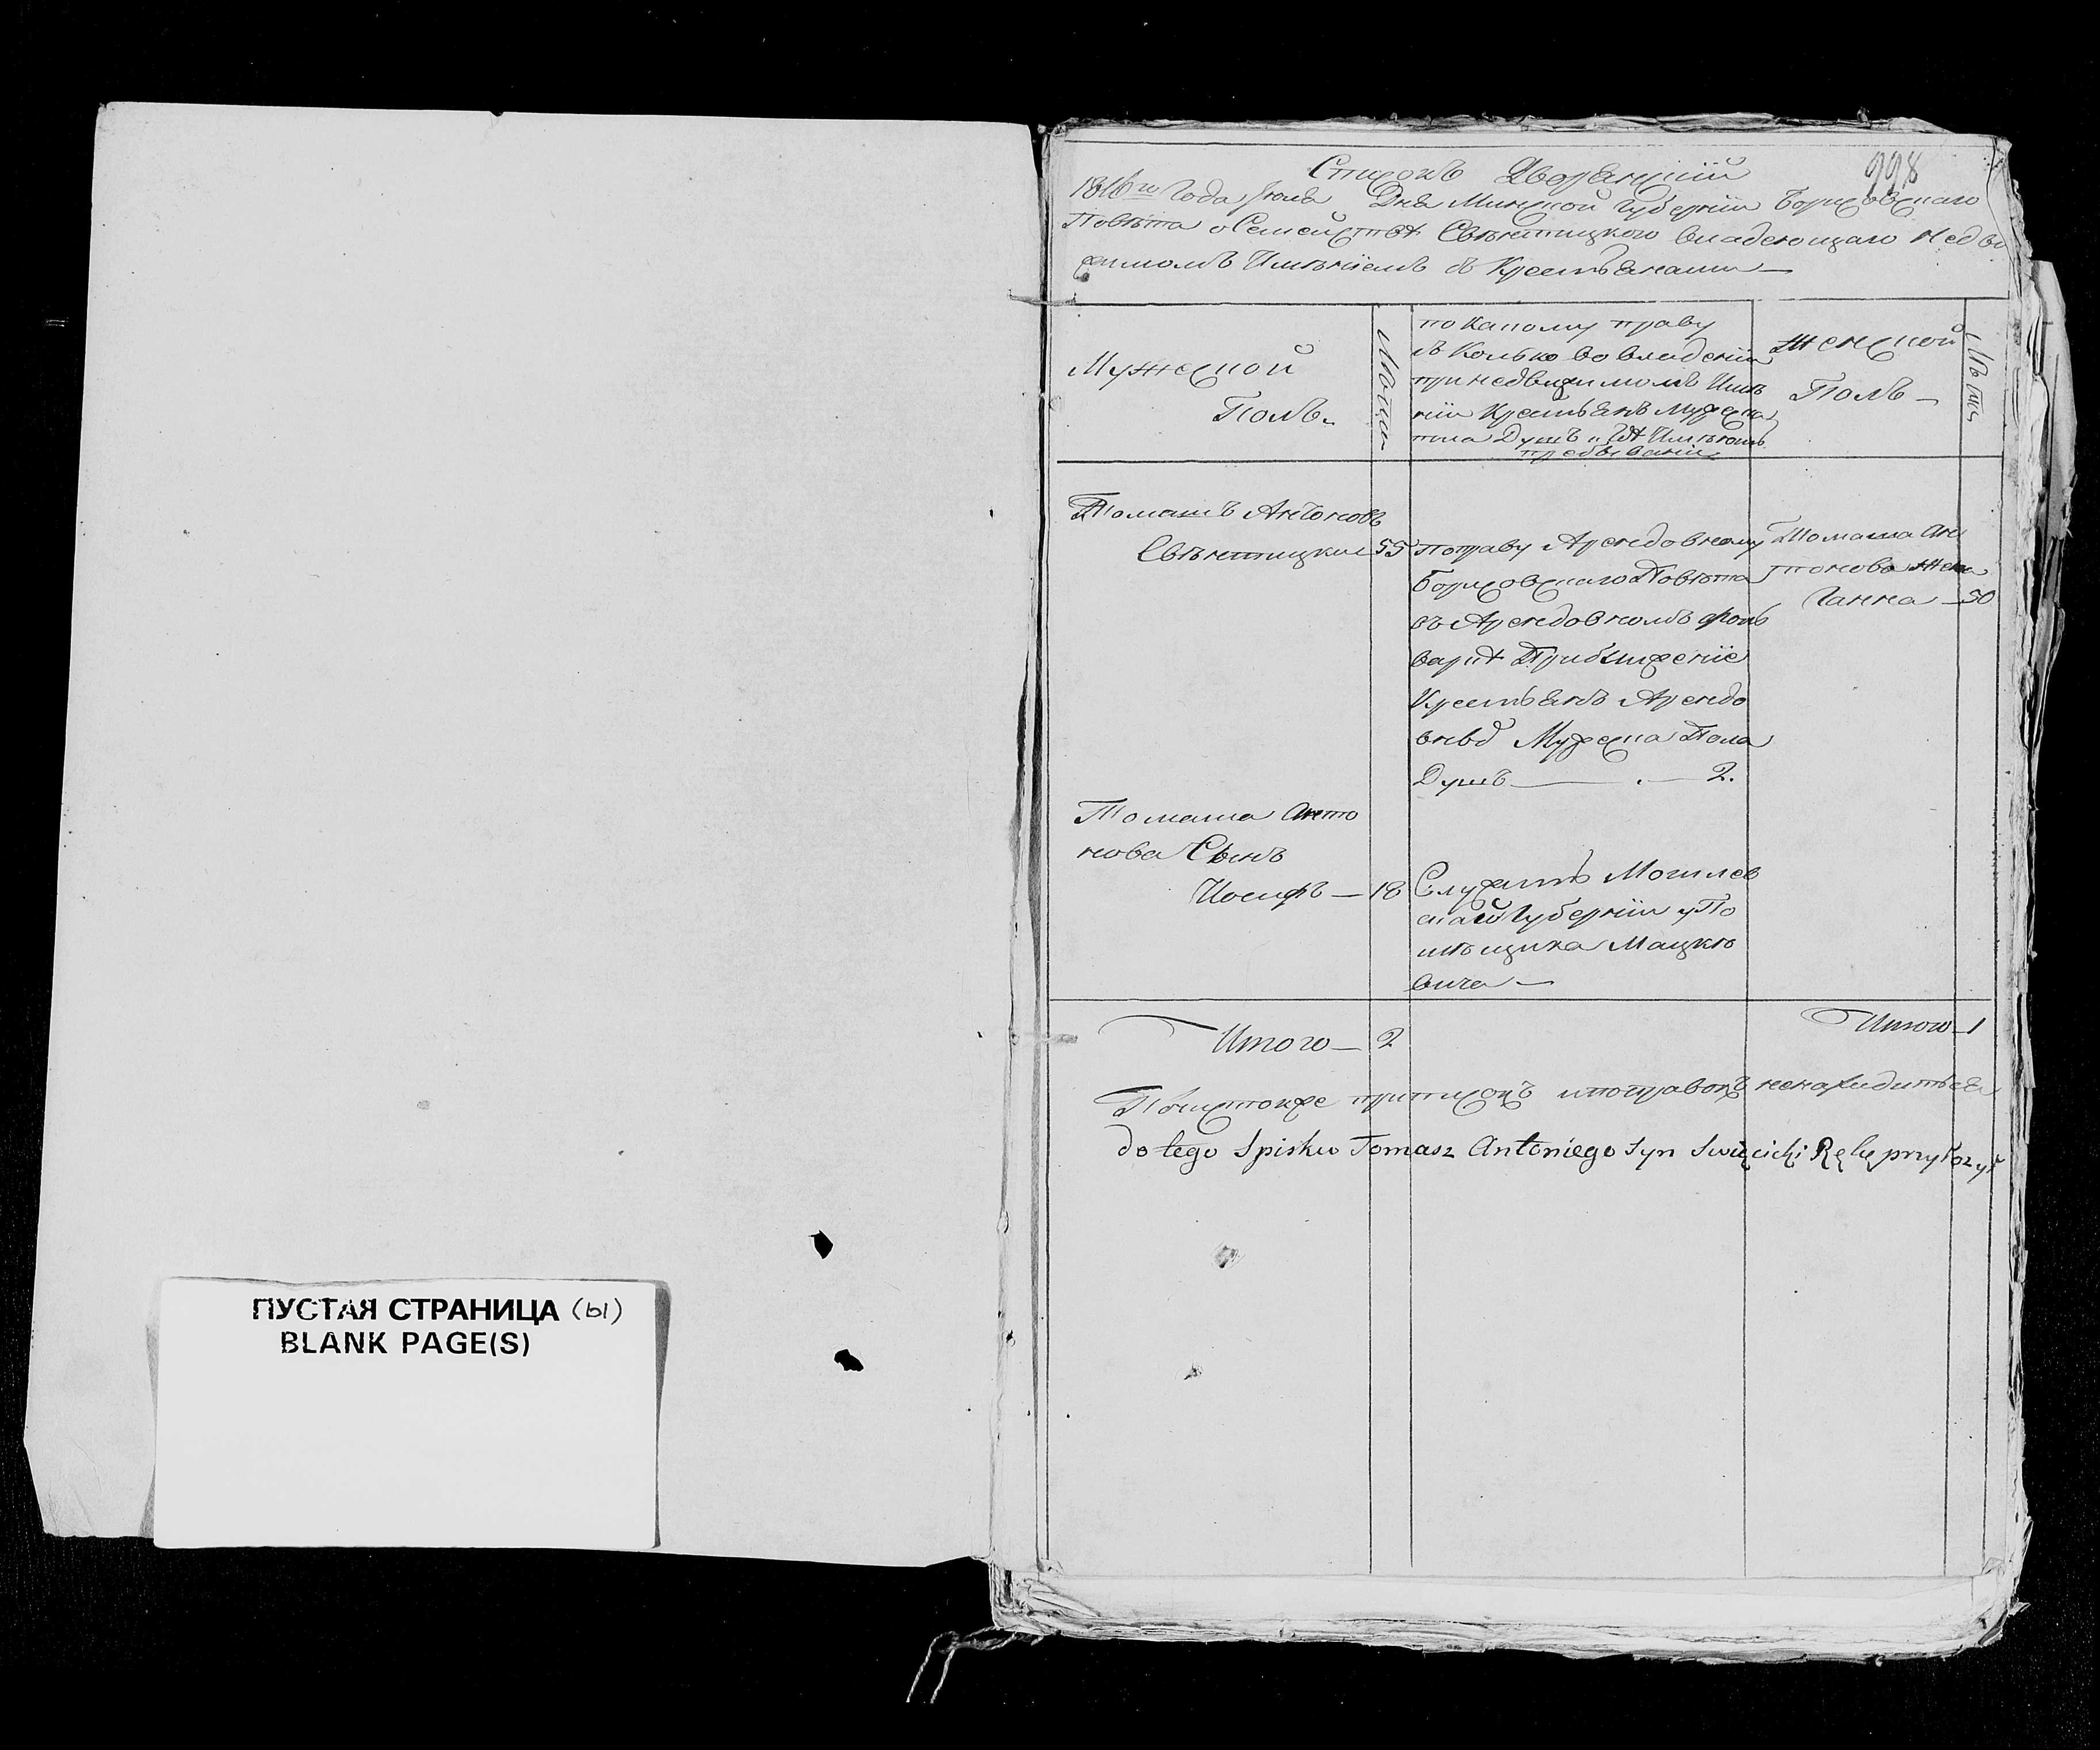 ПУСТАЯ СТРАНИЦА (ы)
BLANK PAGE(S)
998
Списокъ Дворянский
1816го Года Июля Дня Минской Губернии Борисовскаго
Повѣта о Семействѣ Свѣнтицкого владеющаго Недви
жимомъ Имѣниемъ съ Крестьянами —
Мужеской
Полъ
Лѣты
по какому праву
съ колько во владении
при недвижимомъ Имѣ
нии Крестьянъ мужеска
пола Душъ и гдѣ Имѣютъ
пребывании
Женской
Полъ —
Лѣты
Томашъ Антоновъ
Свѣнтицкии 55
по праву Арендовному
Борисовскаго Повѣта
въ Арендовномъ фоль
варкѣ
Крестьянъ Арендо
Мужеска Пола
Душъ — 2.
Томаша Ан
тонова жена
Ганна — 50
Томаша Анто
нова Сынъ
Иосифъ — 18
Служитъ Могилев
Губернии у По
мѣщика Мацкѣ
вича —
Итого — 2
Итого — 1
приписокъ и поправокъ ненаходиться
do tego Spisku Tomasz Antoniego Syn Swięcicki Rękę przyłożył